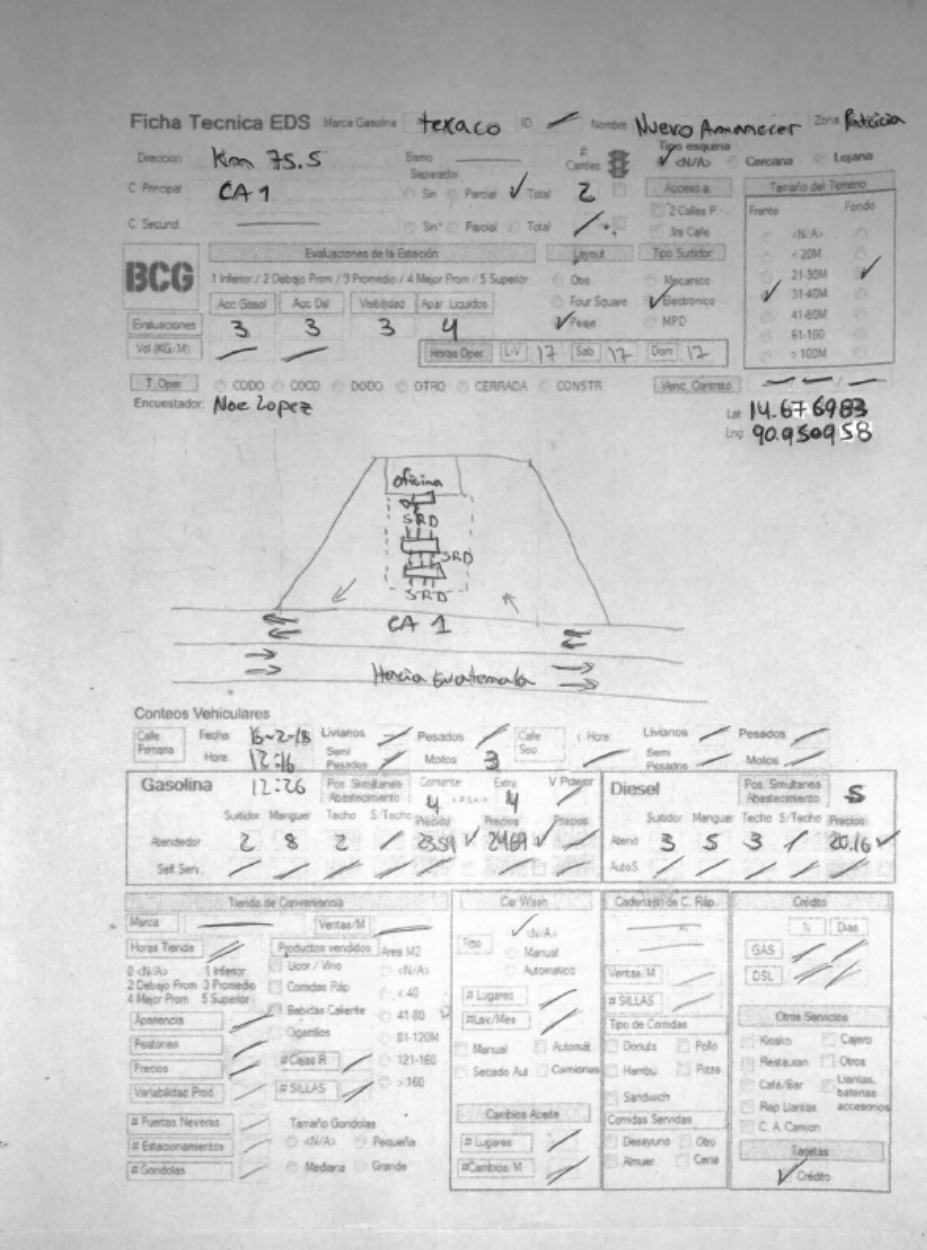 Ficha Tecnica EDS Marca Gasolina texaco ID Nombre Nuevo Amanecer Zona Patricia
Direccion Km 75.5 Barrio # Carriles Tipo esquina <N/A> Cercana Lejana
C Principal CA 1 Separador Sin Parcial Total 2 Acceso a Tamaño del Terreno
2 Calles P Frente Fondo
C Secund. Sin Parcial Total 3ra Calle <N/A>
BCG Evaluaciones de la Estación Layout Tipo Surtidor < 20M
1 Inferior / 2 Debajo Prom / 3 Promedio / 4 Mejor Prom / 5 Superior Otro Mecanico 21-30M
Acc Gasol Acc Dsl Visibilidad Apar. Liquidos Four Square Electronico 31-40M
Evaluaciones 3 3 3 4 Peaje MPD 41-60M
61-100
Vol (KG/M) Horas Oper L-V 17 Sab 17 Dom 17 > 100M
T. Oper CODO COCO DODO OTRO CERRADA CONSTR Venc. Contrato
Encuestador: Noe Lopez Lat 14.676983
Lng 90.950958
oficina
SRD
SRD
SRD
CA 1
Hacia Guatemala
Conteos Vehiculares
Calle Primaria Fecha 16-2-18 Livianos Pesados Calle Sec Hora: Livianos Pesados
Hora 12:16 Semi Pesados Motos 3 Semi Pesados Motos
Gasolina 12:26 Pos Simultanea Abastecimiento Corriente 4 Extra 4 V Power Diesel Pos. Simultanea Abastecimiento 5
Surtidor Manguer Techo S/Techo Precios Precios Precios Surtidor Manguer Techo S/Techo Precios
Atendedor 2 8 2 23.59 24.69 Atend 3 5 3 20.16
Self Serv. AutoS
Tienda de Conveniencia Car Wash Cadenas de C. Ráp. Crédito
Marca Ventas/M <N/A> % Dias
Horas Tienda Productos vendidos Area M2 Tipo Manual GAS
0 <N/A> 1 Inferior Licor / Vino <N/A> Automatico Ventas/M DSL
2 Debajo Prom 3 Promedio Comidas Ráp < 40
4 Mejor Prom 5 Superior # Lugares # SILLAS
Apariencia Bebidas Caliente 41-80 #Lav/Mes Tipo de Comidas Otros Servicios
Cigarrillos 81-120M Manual Automát Donuts Pollo Kiosko Cajero
Precios #Cajas R 121-160 Secado Aut Camiones Hambu Pizza Restauran Otros
Variabilidad Prod # SILLAS > 160 Sandwich Café/Bar Llantas, baterias accesorios
# Puertas Neveras Tamaño Gondolas Cambios Aceite Comidas Servidas Rep Llantas
C. A. Camion
# Estacionamientos <N/A> Pequeña # Lugares Desayuno Otro Tarjetas
# Gondolas Mediana Grande #Cambios/M Almuer. Cena Crédito